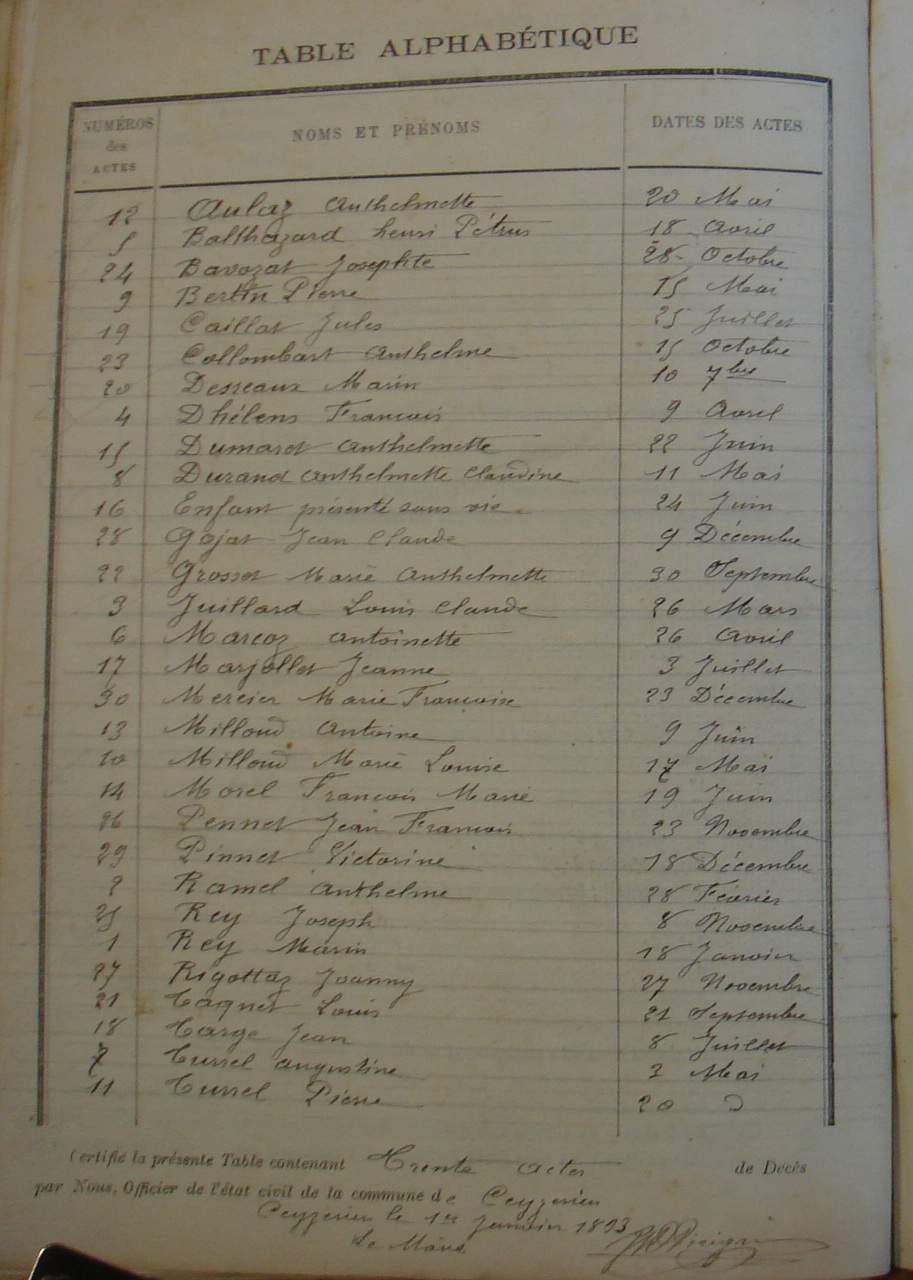 TABLE ALPHABÉTIQUE
NUMÉROS des ACTES NOMS ET PRÉNOMS DATES DES ACTES
12 Aulaz Anthelmette 20 Mai
5 Balthazard henri Pétrus 18 Avril
24 Bavozat Josephte 28 Octobre
9 Bertin Pierre 15 Mai
19 Caillat Jules 25 Juillet
23 Collombart Anthelme 15 Octobre
20 Desseaux Marin 10 7bre
4 Dhélens Francois 9 Avril
15 Dumarot Anthelmette 22 Juin
8 Durand Anthelmette Claudine 11 Mai
16 Enfant présenté sans vie 24 Juin
28 Gojat Jean Claude 9 Décembre
22 Grosset Marie Anthelmette 30 Septembre
3 Juillard Louis Claude 26 Mars
6 Marcoz Antoinette 26 Avril
17 Marjollet Jeanne 3 Juillet
30 Mercier Marie Francoise 23 Décembre
13 Milloud Antoine 9 Juin
10 Milloud Marie Louise 17 Mai
14 Morel Francois Marie 19 Juin
26 Pennet Jean Francois 23 Novembre
29 Pinnet Victorine 18 Décembre
2 Ramel Anthelme 28 Février
25 Rey Joseph 8 Novembre
1 Rey Marin 18 Janvier
27 Rigottaz Joanny 27 Novembre
21 Tagnet Louis 21 Septembre
18 Targe Jean 8 Juillet
7 Turrel Augustine 2 Mai
11 Turrel Pierre 20 d
Certifié la présente Table contenant Trente actes de Décès
par Nous, Officier de l'état civil de la commune de Ceyzerieu
Ceyzerieu le 1er Janvier 1893
Le Maire